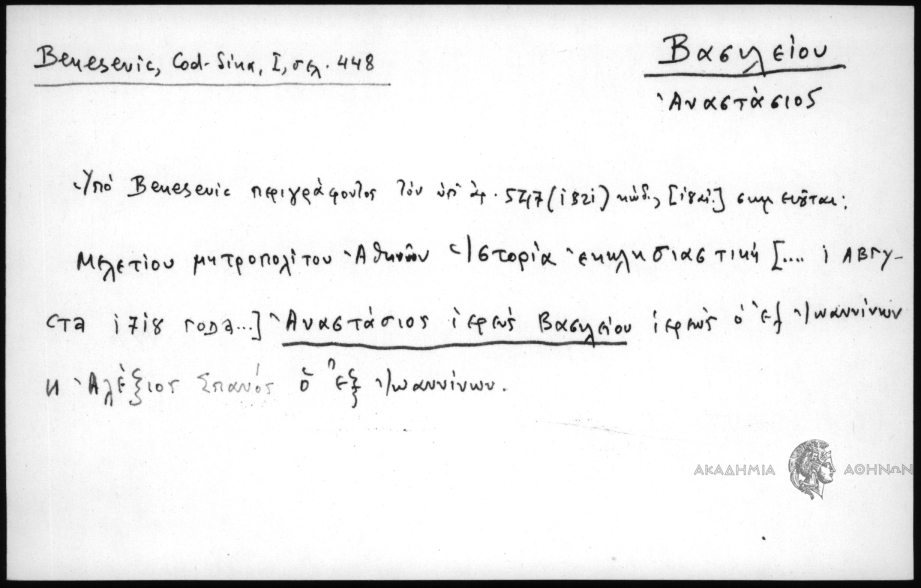 Benesevic, Cod. Sina, I, σελ. 448
Βασιλείου
Ἀναστάσιος
Ὑπό Benesevic περιγράφοντος τόν ὑπ' ἀρ. 547 (1821) κώδ., [1841] σημειοῦται:
Μελετίου μητροπολίτου Ἀθηνῶν Ἱστορία ἐκκλησιαστική [.... 1 АВГУ-
СТА 1718 ГОДА...] Ἀναστάσιος ἱερεύς Βασιλείου ἱερεύς ὁ ἐξ Ἰωαννίνων
и Ἀλέξιος Σπανός ὁ ἐξ Ἰωαννίνων.
ΑΚΑΔΗΜΙΑ ΑΘΗΝΩΝ